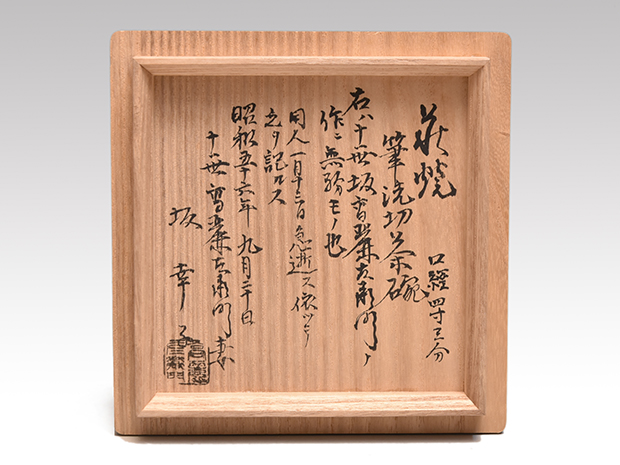 萩焼
筆洗切茶碗
口径四寸三分
右ハ十一世坂高麗左衛門ノ
作ニ無紛モノ也
同人一月十三日急逝ス依ッテ
之ヲ記ルス
昭和五十六年九月二十日
十一世高麗左衛門妻
坂幸子